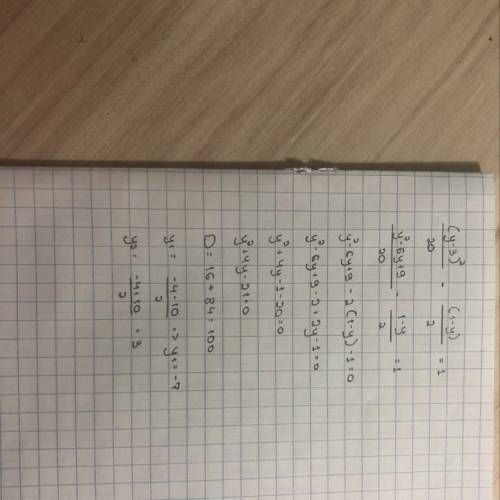 (y-3)²/20 - (1-y)/2 = 1
y²-6y+9/20 - 1-y/2 = 1
y²-6y+9-2(1-y)-1=0
y²-6y+9-2+2y-1=0
y²+4y-1-20=0
y²+4y-21=0
D=16+84=100
y₁ = -4-10/2 => y₁=-7
y₂ = -4+10/2 = 3